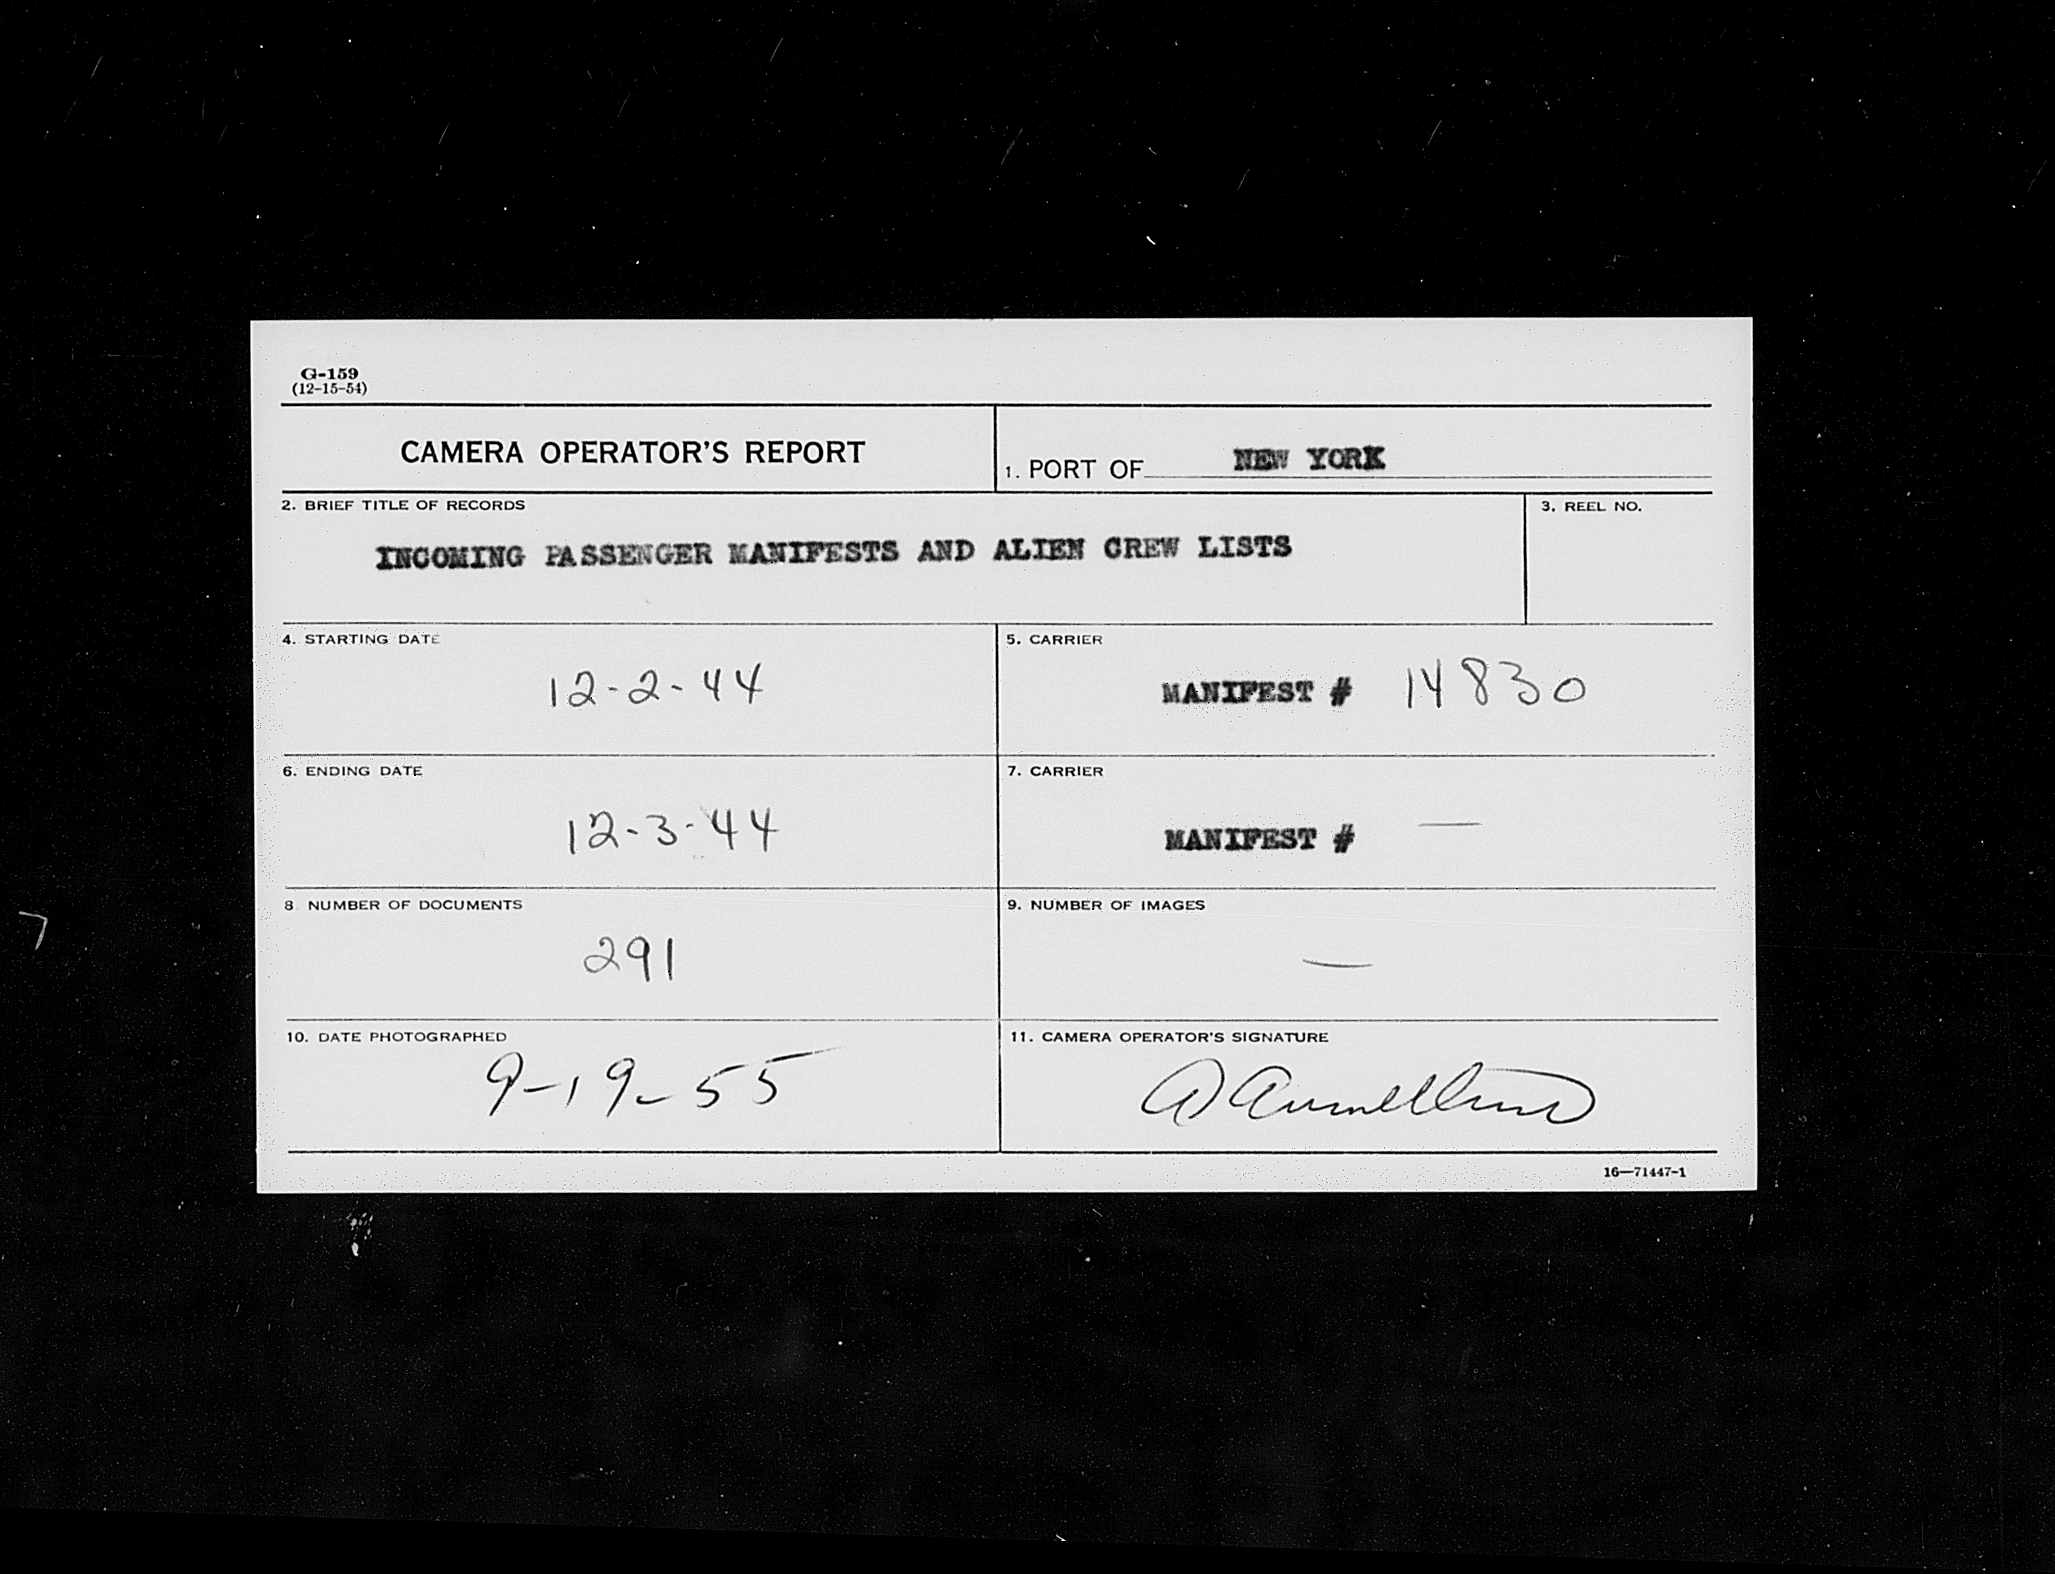 G-159
(12-15-54)
CAMERA OPERATOR'S REPORT
1. PORT OF NEW YORK
2. BRIEF TITLE OF RECORDS
3. REEL NO.
INCOMING PASSENGER MANIFESTS AND ALIEN CREW LISTS
4. STARTING DATE
12-2-44
5. CARRIER
MANIFEST # 14830
6. ENDING DATE
12-3-44
7. CARRIER
MANIFEST # —
8 NUMBER OF DOCUMENTS
291
9. NUMBER OF IMAGES
—
10. DATE PHOTOGRAPHED
9-19-55
11. CAMERA OPERATOR'S SIGNATURE
16—71447-1